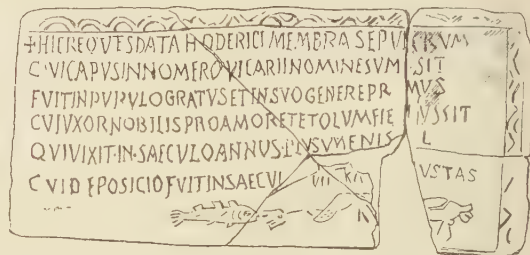 +HICREQVIESDATA HLODERICI MEMBRA SEPVLCRVM
CVICAPVSINNOMERO VICARIINOMINESVM SIT
FVITINPVPVLOGRATVSETINSVOGENEREPR MVS
CVIVXORNOBILISPROAMORETETOLVMFIE IVSSIT
QVIVIXIT·IN·SAECVLOANNVS· MENIS L
CVIDEPOSICIOFVITINSAECVL VII KL VSTAS